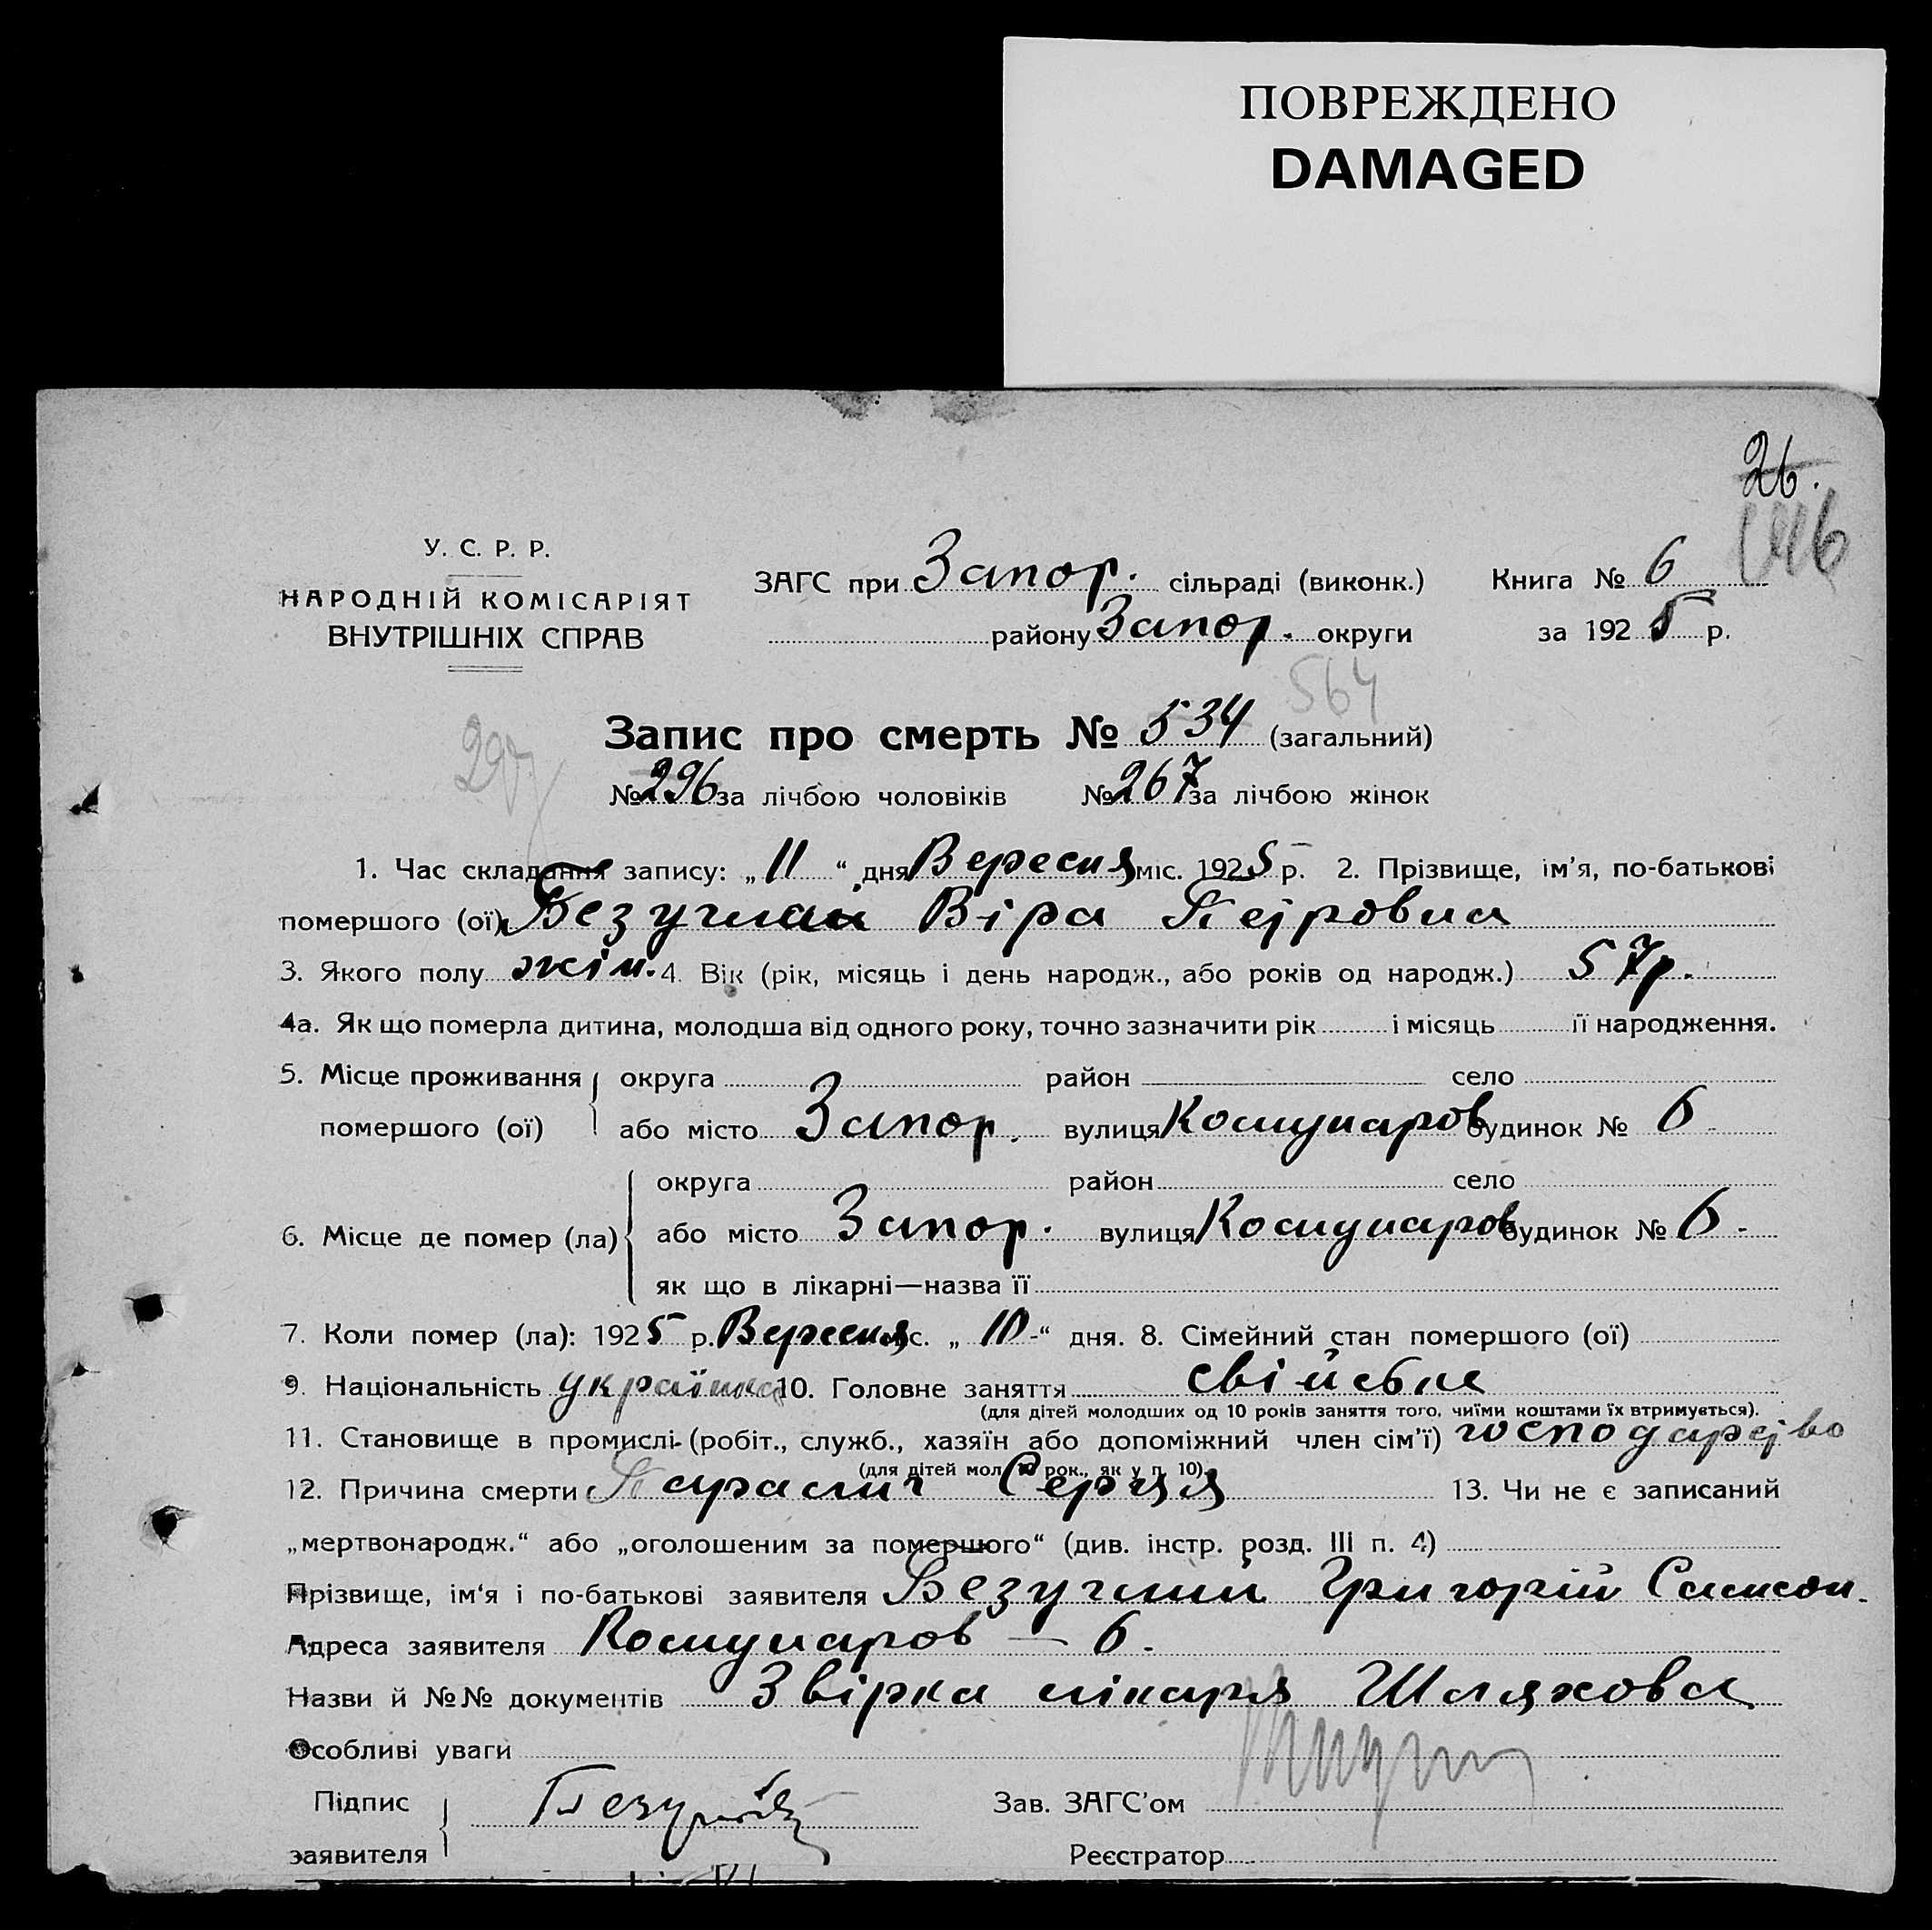 ПОВРЕЖДЕНО
DAMAGED
26.
У. С. Р. Р.
НАРОДНІЙ КОМІСАРІЯТ
ВНУТРІШНІХ СПРАВ
ЗАГС при Запор. сільраді (виконк.) Книга № 6
району Запор. округи за 1925 р.
564
Запис про смерть № 534 (загальний)
297
№ 296 за лічбою чоловіків № 267 за лічбою жінок
1. Час складання запису: „11“ дня Вересня міс. 1925 р. 2. Прізвище, ім’я, по-батькові
помершого (ої) Безучлая Віра Петровна
3. Якого полу жін. 4. Вік (рік, місяць і день народж., або років од народж.) 57р.
4а. Як що померла дитина, молодша від одного року, точно зазначити рік і місяць її народження.
5. Місце проживання округа район село
помершого (ої) або місто Запор. вулиця Комунаров будинок № 6
округа район село
6. Місце де помер (ла) або місто Запор. вулиця Комунаров будинок № 6 -
як що в лікарні—назва її
7. Коли помер (ла): 1925 р. Вересня міс. „10-“ дня. 8. Сімейний стан помершого (ої)
9. Національність українка 10. Головне заняття свійське
(для дітей молодших од 10 років заняття того, чиїми коштами їх втримується).
11. Становище в промислі (робіт., служб., хазяїн або допоміжний член сім’ї) господарство
(для дітей мол. 10 рок., як у п. 10).
12. Причина смерти Параліч Серця 13. Чи не є записаний
„мертвонародж.“ або „оголошеним за помершого“ (див. інстр. розд. III п. 4)
Прізвище, ім‘я і по-батькові заявителя Безучлий Григорій Самсон.
Адреса заявителя Комунаров — 6.
Назви й №№ документів Звірка лікаря Шляхова
Особливі уваги
Підпис Зав. ЗАГС’ом
заявителя Реєстратор